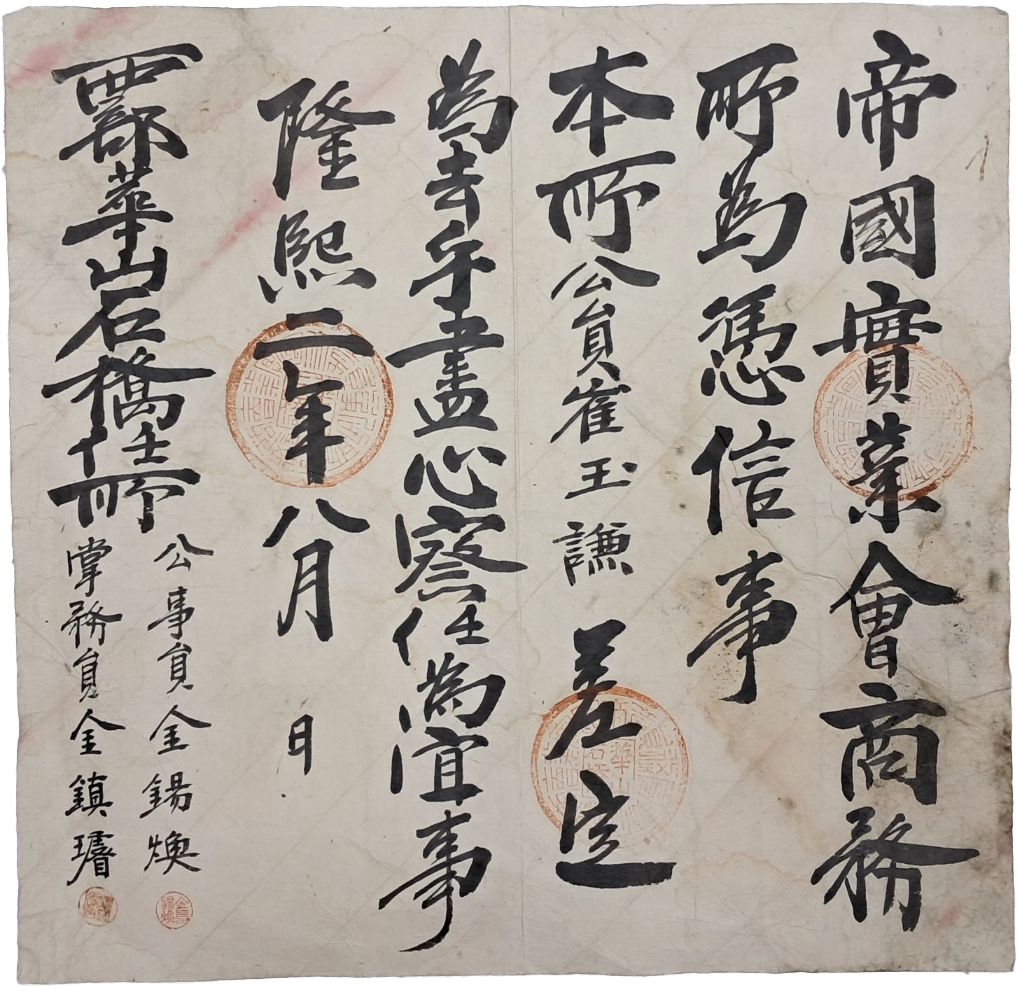 帝國實業會商務
所為憑信事
本所公員崔玉謙差定
為去乎盡心察任為宜事
隆熙二年八月 日
西部華山石橋任所
公事員金錫煥
掌務員金鎮璿